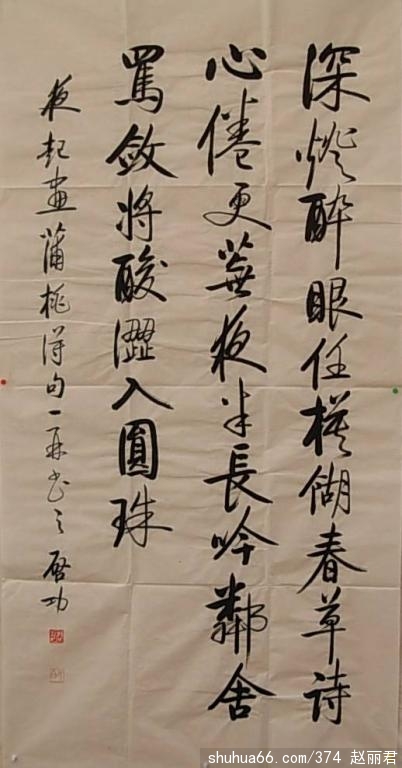 深燈醉眼任模糊春草詩
心倦更蕪夜半長吟鄰舍
罵斂將酸澀入圓珠
夜起畫蒲桃得句一再書之 啟功
shuhua66.com/374 赵丽君